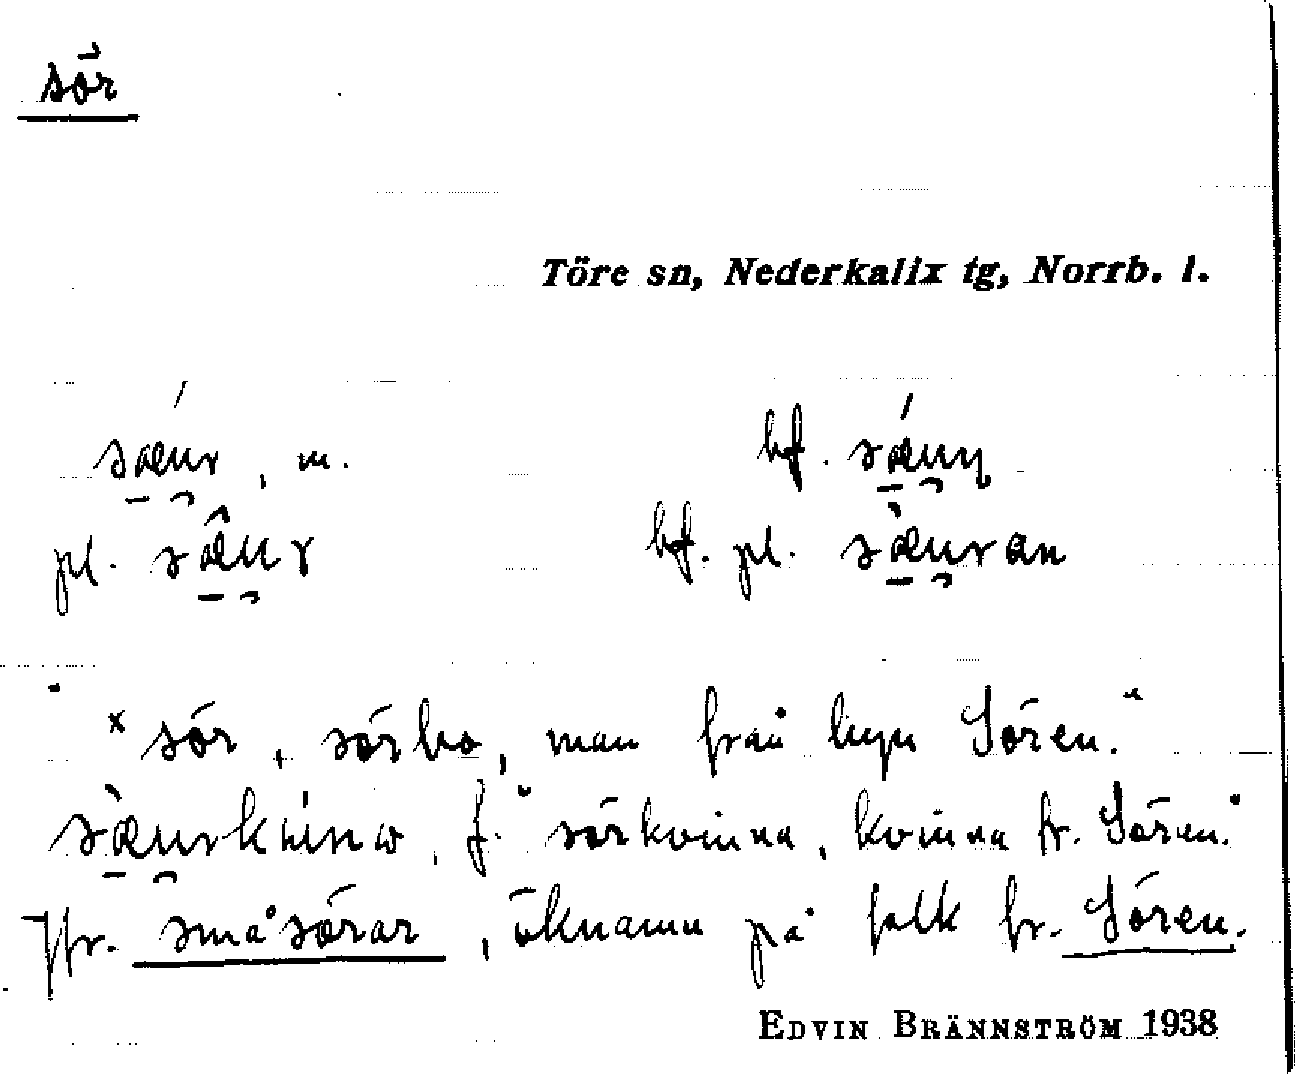 sör
Töre sn, Nederkalix tg, Norrb. l.
sæ̀ur, m. bf. sæ̀un
pl. sæ̂ur bf. pl. sæ̀uran
"*sör, sörbo, man från byn Sören."
sæ̀urkwinɷ, f. "sörkvinna, kvinna fr. Sören."
Jfr. småsörar, öknamn på folk fr. Sören.
EDVIN BRÄNNSTRÖM 1938